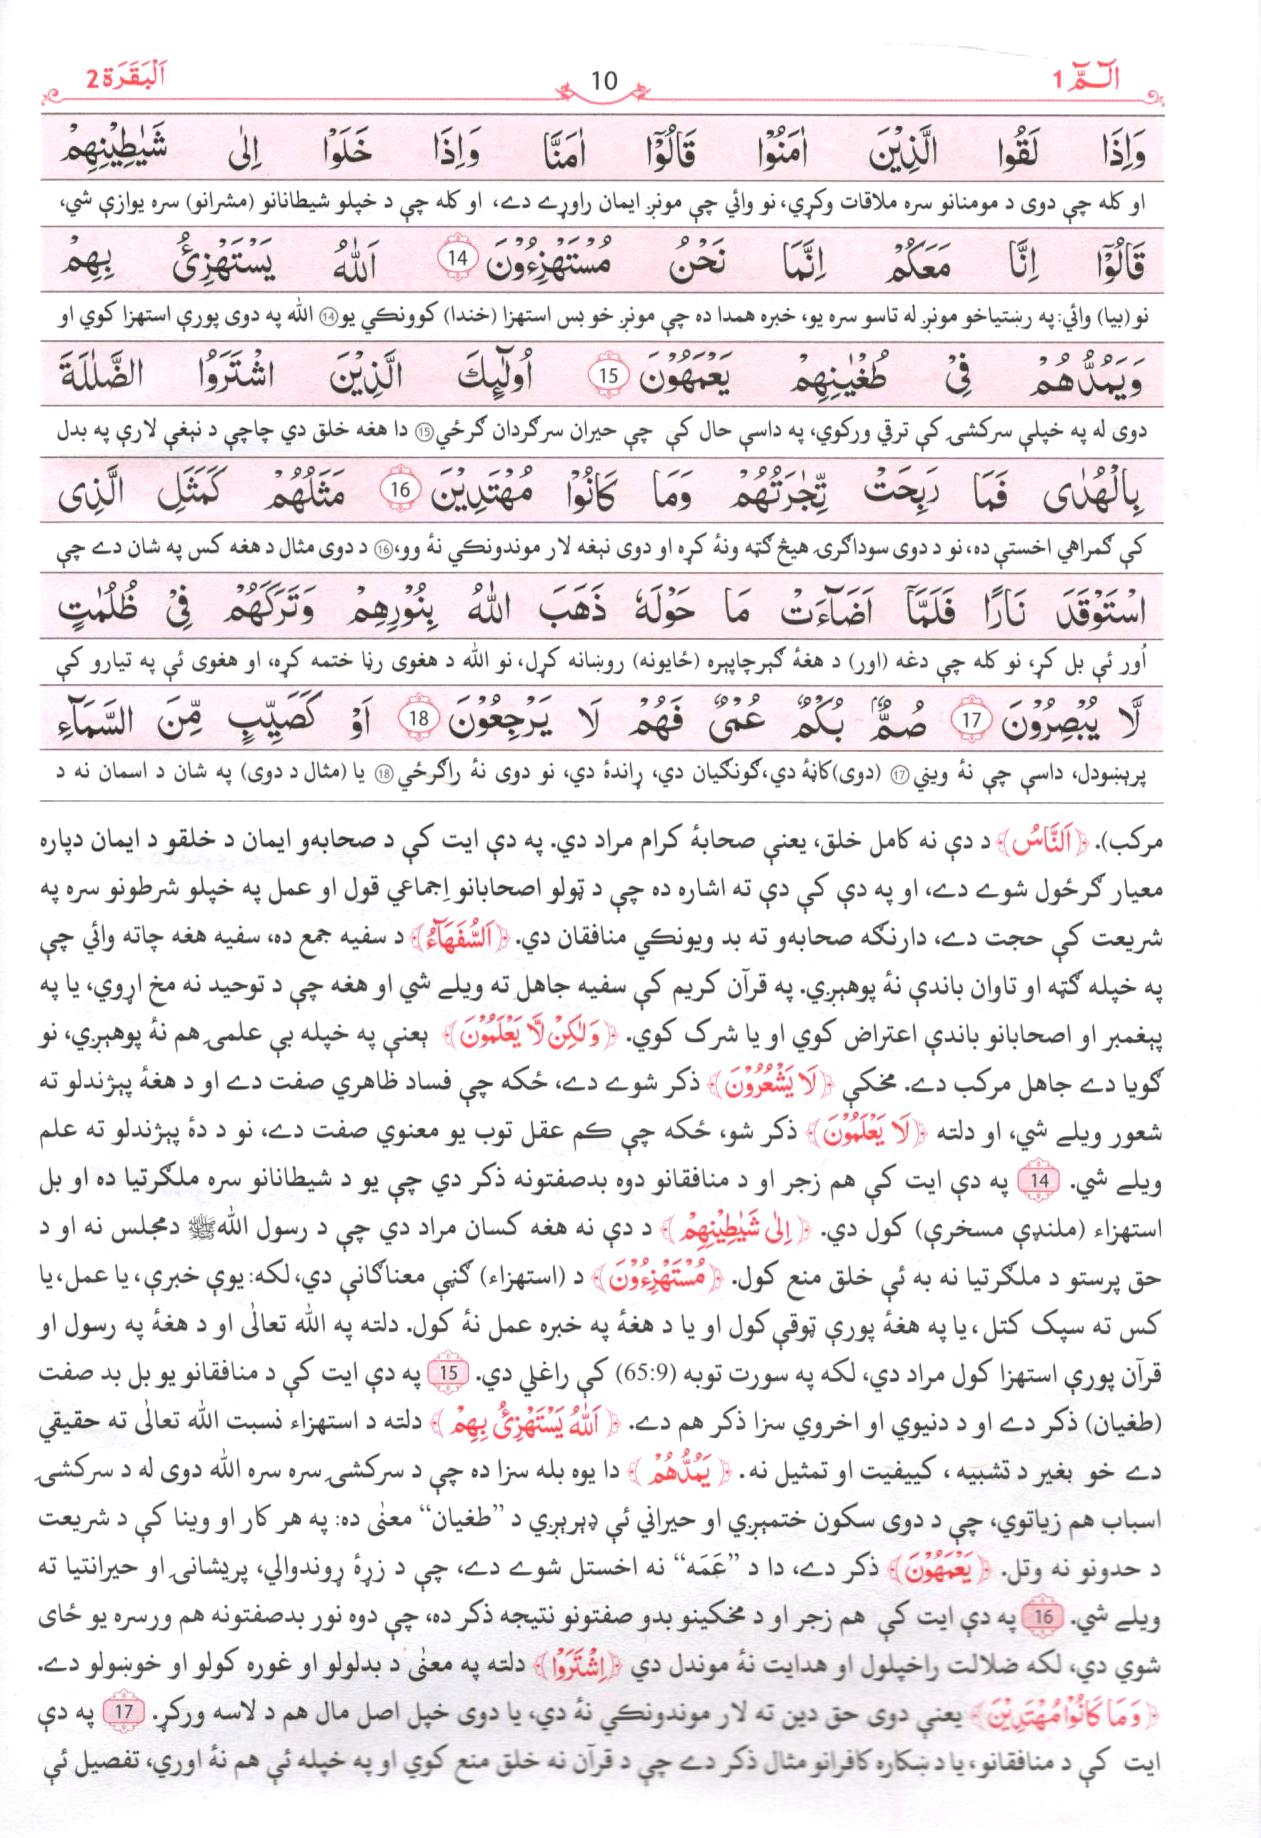 الٓـمّٓ 1
10
اَلْبَقَرَة 2
وَاِذَا لَقُوا الَّذِيْنَ اٰمَنُوْا قَالُوْٓا اٰمَنَّا وَاِذَا خَلَوْا اِلٰى شَيٰطِيْنِهِمْ
او کله چې دوی د مومنانو سره ملاقات وکړي، نو وائي چې مونږ ایمان راوړے دے، او کله چې د خپلو شیطانانو (مشرانو) سره یوازې شي،
قَالُوْٓا اِنَّا مَعَكُمْ اِنَّمَا نَحْنُ مُسْتَهْزِءُوْنَ 14 اَللّٰهُ يَسْتَهْزِئُ بِهِمْ
نو (بیا) وائي: په رښتیاخو مونږ له تاسو سره یو، خبره همدا ده چې مونږ خو بس استهزا (خندا) کوونکي یو⑭ الله په دوی پورې استهزا کوي او
وَيَمُدُّهُمْ فِيْ طُغْيٰنِهِمْ يَعْمَهُوْنَ 15 اُولٰٓئِكَ الَّذِيْنَ اشْتَرَوُا الضَّلٰلَةَ
دوی له په خپلې سرکشۍ کې ترقي ورکوي، په داسې حال کې چې حیران سرګردان ګرځي⑮ دا هغه خلق دي چاچې د نېغې لارې په بدل
بِالْهُدٰى فَمَا رَبِحَتْ تِّجٰرَتُهُمْ وَمَا كَانُوْا مُهْتَدِيْنَ 16 مَثَلُهُمْ كَمَثَلِ الَّذِى
کې ګمراهي اخستې ده، نو د دوی سوداګرۍ هیڅ ګټه ونۀ کړه او دوی نېغه لار موندونکي نۀ وو،⑯ د دوی مثال د هغه کس په شان دے چې
اسْتَوْقَدَ نَارًا فَلَمَّآ اَضَآءَتْ مَا حَوْلَهٗ ذَهَبَ اللّٰهُ بِنُوْرِهِمْ وَتَرَكَهُمْ فِيْ ظُلُمٰتٍ
اُور ئې بل کړ، نو کله چې دغه (اور) د هغۀ ګېرچاپېره (ځایونه) روښانه کړل، نو الله د هغوی رڼا ختمه کړه، او هغوی ئې په تیارو کې
لَّا يُبْصِرُوْنَ 17 صُمٌّۢ بُكْمٌ عُمْىٌ فَهُمْ لَا يَرْجِعُوْنَ 18 اَوْ كَصَيِّبٍ مِّنَ السَّمَآءِ
پرېښودل، داسې چې نۀ ویني⑰ (دوی) کاڼۀ دي، ګونګیان دي، ړاندۀ دي، نو دوی نۀ راګرځي⑱ یا (مثال د دوی) په شان د اسمان نه د
مرکب). ﴿اَلنَّاسُ﴾ د دې نه کامل خلق، یعنې صحابۀ کرام مراد دي. په دې ایت کې د صحابه‌و ایمان د خلقو د ایمان دپاره
معیار ګرځول شوے دے، او په دې کې دې ته اشاره ده چې د ټولو اصحابانو اِجماعي قول او عمل په خپلو شرطونو سره په
شریعت کې حجت دے، دارنګه صحابه‌و ته بد ویونکي منافقان دي. ﴿اَلسُّفَهَآءُ﴾ د سفیه جمع ده، سفیه هغه چاته وائي چې
په خپله ګټه او تاوان باندې نۀ پوهېږي. په قرآن کریم کې سفیه جاهل ته ویلے شي او هغه چې د توحید نه مخ اړوي، یا په
پېغمبر او اصحابانو باندې اعتراض کوي او یا شرک کوي. ﴿وَلٰكِنْ لَّا يَعْلَمُوْنَ﴾ یعنې په خپله بې علمۍ هم نۀ پوهېږي، نو
ګویا دے جاهل مرکب دے. مخکې ﴿لَا يَشْعُرُوْنَ﴾ ذکر شوے دے، ځکه چې فساد ظاهري صفت دے او د هغۀ پېژندلو ته
شعور ویلے شي، او دلته ﴿لَا يَعْلَمُوْنَ﴾ ذکر شو، ځکه چې کم عقل توب یو معنوي صفت دے، نو د دۀ پېژندلو ته علم
ویلے شي. 14 په دې ایت کې هم زجر او د منافقانو دوه بدصفتونه ذکر دي چې یو د شیطانانو سره ملګرتیا ده او بل
استهزاء (ملنډې مسخرې) کول دي. ﴿اِلٰى شَيٰطِيْنِهِمْ﴾ د دې نه هغه کسان مراد دي چې د رسول الله ﷺ دمجلس نه او د
حق پرستو د ملګرتیا نه به ئې خلق منع کول. ﴿مُسْتَهْزِءُوْنَ﴾ د (استهزاء) ګڼې معناګانې دي، لکه: یوې خبرې، یا عمل، یا
کس ته سپک کتل، یا په هغۀ پورې ټوقې کول او یا د هغۀ په خبره عمل نۀ کول. دلته په الله تعالٰی او د هغۀ په رسول او
قرآن پورې استهزا کول مراد دي، لکه په سورت توبه (65:9) کې راغلي دي. 15 په دې ایت کې د منافقانو یو بل بد صفت
(طغیان) ذکر دے او د دنیوي او اخروي سزا ذکر هم دے. ﴿اَللّٰهُ يَسْتَهْزِئُ بِهِمْ﴾ دلته د استهزاء نسبت الله تعالٰی ته حقیقي
دے خو بغیر د تشبیه، کییفیت او تمثیل نه. ﴿يَمُدُّهُمْ﴾ دا یوه بله سزا ده چې د سرکشۍ سره سره الله دوی له د سرکشۍ
اسباب هم زیاتوي، چې د دوی سکون ختمېږي او حیراني ئې ډېرېږي د ”طغیان“ معنٰی ده: په هر کار او وینا کې د شریعت
د حدونو نه وتل. ﴿يَعْمَهُوْنَ﴾ ذکر دے، دا د ”عَمَه“ نه اخستل شوے دے، چې د زړۀ ړوندوالي، پریشانۍ او حیرانتیا ته
ویلے شي. 16 په دې ایت کې هم زجر او د مخکینو بدو صفتونو نتیجه ذکر ده، چې دوه نور بدصفتونه هم ورسره یو ځای
شوي دي، لکه ضلالت راخپلول او هدایت نۀ موندل دي ﴿اِشْتَرَوُا﴾ دلته په معنٰی د بدلولو او غوره کولو او خوښولو دے.
﴿وَمَا كَانُوْا مُهْتَدِيْنَ﴾ یعنې دوی حق دین ته لار موندونکي نۀ دي، یا دوی خپل اصل مال هم د لاسه ورکړ. 17 په دې
ایت کې د منافقانو، یا د ښکاره کافرانو مثال ذکر دے چې د قرآن نه خلق منع کوي او په خپله ئې هم نۀ اوري، تفصیل ئې